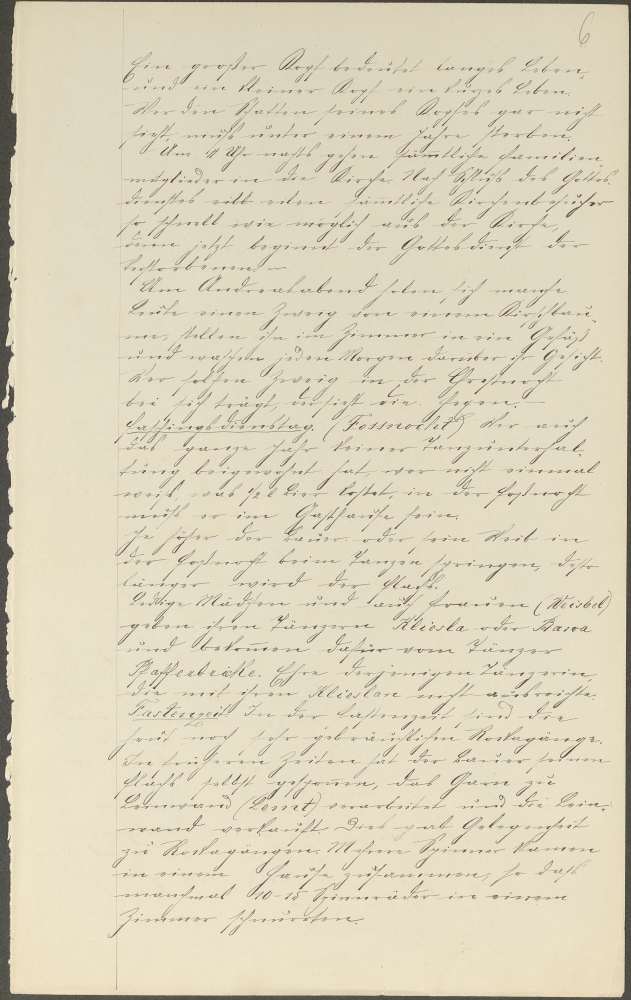 6
Ein großer Kopf bedeutet langes Leben,
und ein kleiner Kopf ein kurzes Leben.
Wer den Schatten seines Kopfes gar nicht
sieht, muß unter einem Jahre sterben.
Um 11 Uhr nachts gehen sämtliche Familien
mitglieder in die Kirche. Nach Schluß des Gottes-
dienstes eilt jeder Kirchenbesucher
so schnell wie möglich aus der Kirche,
denn jetzt beginnt der Gottesdienst der
Verstorbenen. –
Am Andreasabend holen sich manche
Leute einen Zweig von einem Kirschbau-
me, stellen ihn im Zimmer in ein Gefäß
und waschen jeden Morgen darüber ihr Gesicht.
Wer solchen Zweig in der Christnacht
bei sich trägt, der sieht die Hexen. –
Faschingsdienstag. (Fossnocht) Wer auch
das ganze Jahr keiner Tanzunterhal-
tung beigewohnt hat, wer nicht einmal
weiß, was 1/2 l Bier kostet, in der Fastnacht
muß er im Gasthause sein.
Je höher der Bauer oder sein Weib in
der Fastnacht beim Tanzen springen, desto
länger wird der Flachs.
Ledige Mädchen und auch Frauen (Weisbel)
geben ihren Tänzern Klieosla oder Bawa
und bekommen dafür vom Tänzer
Ehre derjenigen Tänzerin,
die mit ihren Klieoslan nicht ausreichte.
Fastenzeit In der Fastenzeit sind die
heut noch sehr gebräuchlichen Rockagänge.
In früheren Zeiten hat der Bauer seinen
Flachs selbst gesponnen, das Garn zu
Leinwand verarbeitet und die Lein-
wand verkauft. Dies gab Gelegenheit
zu Rockagängen. Mehrere Spinner kamen
in einem Hause zusammen, so daß
manchmal 10-15 Spinnräder in einem
Zimmer schnurrten.